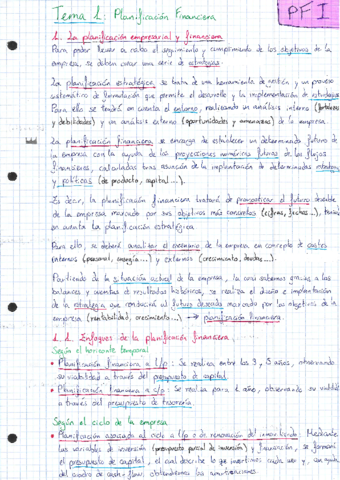 Tema 1: Planificación Financiera
PFI
1. La planificación empresarial y financiera
Para poder llevar a cabo el seguimiento y cumplimiento de los objetivos de la
empresa, se deben crear una serie de estrategias.
La planificación estratégica, se trata de una herramienta de gestión y un proceso
sistemático de formulación que permite el desarrollo y la implementación de estrategias
Para ello se tendrá en cuenta el entorno, realizando un análisis interno (fortalezas
y debilidades) y un análisis externo (oportunidades y amenazas) de la empresa.
La planificación financiera se encarga de establecer un determinado futuro de
la empresa con la ayuda de las proyecciones numéricas futuras de los flujos
financieros, calculadas tras asunción de la implantación de determinadas
y políticas (de producto, capital...).
Es decir, la planificación financiera tratará de pronosticar el futuro
de la empresa marcado por sus objetivos más concretas (cifras, fechas...),
en cuenta la planificación estratégica
Para ello, se deberá analizar el escenario de la empresa en concepto de gastos
internos (personal, energía...) y externos (crecimiento, deudas...).
Partiendo de la situación actual de la empresa, la cual sabemos gracias a los
balances y cuentas de resultados históricos, se realiza el diseño e implementación
de la estrategia que conducirá al futuro deseado marcado por los objetivos de la
empresa (rentabilidad, crecimiento...) → planificación financiera.
1.1. Enfoques de la planificación financiera
Según el horizonte temporal
• Planificación financiera a l/p: Se realiza entre los 3, 5 años, observando
su viabilidad a través del presupuesto de capital
• Planificación financiera a c/p: Se realiza para 1 año, observando su
a través del presupuesto de tesorería
Según el ciclo de la empresa
• Planificación asociada al ciclo a l/p o de renovación del inmovilizado. Mediante
las variables de inversión (presupuesto parcial de inversión) y financiación, se formará
el presupuesto de capital, el cual describe lo que invertimos cada año y,
del cuadro de cash-flows obtendremos las